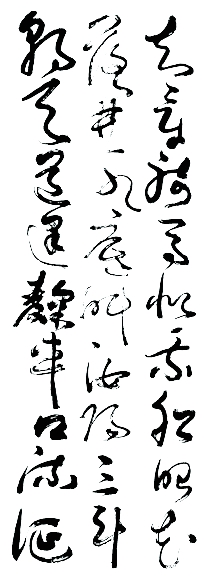 知章騎馬似乘船眼花
落井水底眠汝陽三斗
朝天道逢麴車口流涎